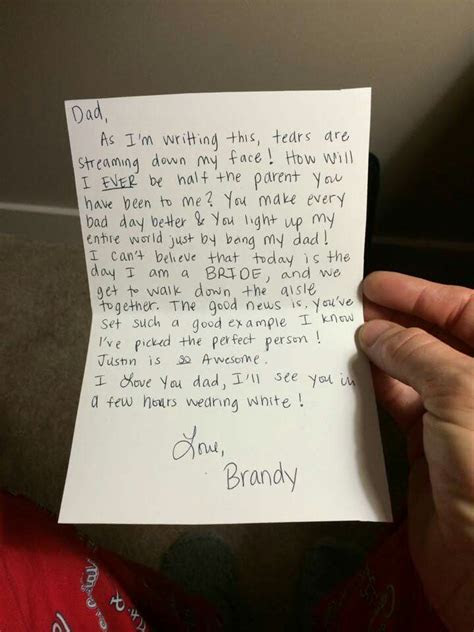 Dad,
As I'm writting this, tears are
streaming down my face! How will
I EVER be half the parent you
have been to me? You make every
bad day better & You light up my
entire world just by bang my dad!
I can't believe that today is the
day I am a BRIDE, and we
get to walk down the aisle
together. The good news is, you've
set such a good example I know
I've picked the perfect person!
Justin is so Awesome.
I Love You dad, I'll see you in
a few hours wearing white!
Love,
Brandy